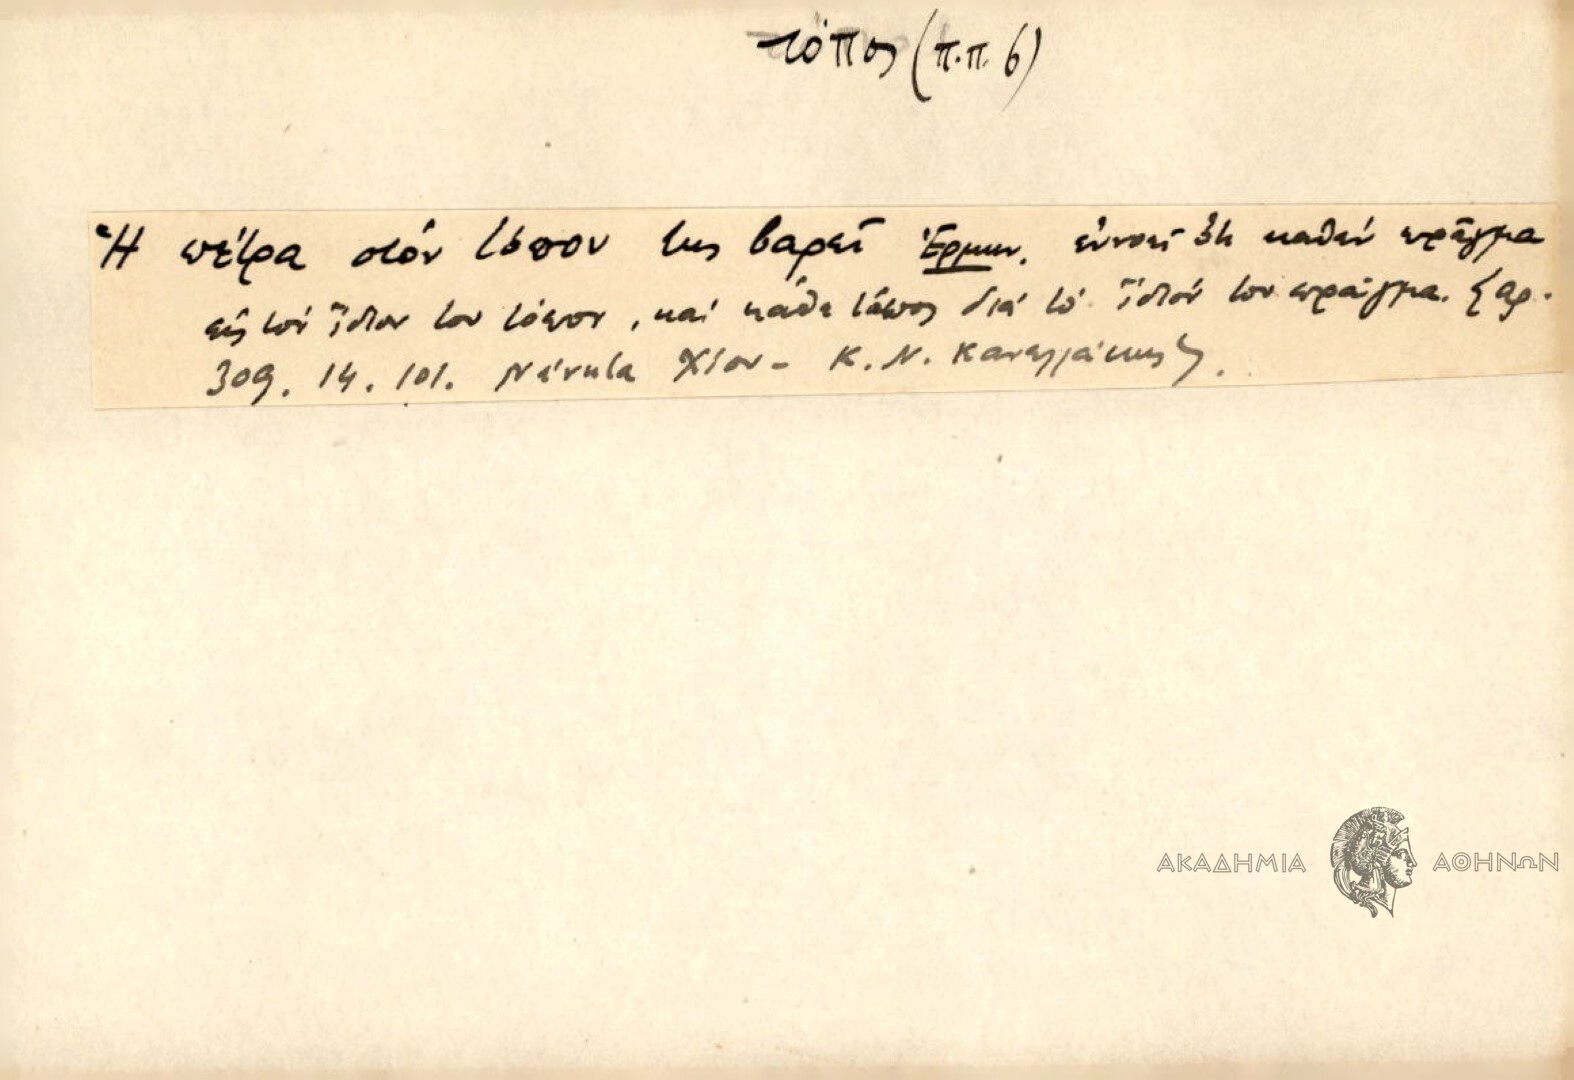 τόπος (π.π. 6)
Ἡ πέτρα στόν τόπον της βαρεῖ Ἑρμην. ἐννοεῖ ὅτι καθέν πρᾶγμα
εἰς τόν ἴδιον του τόπον, καί κάθε τόπος διά τό ἴδιόν του πρᾶγμα. ξ αρ.
309. 14. 101. Νένητα Χίου - Κ. Ν. Κανελλάκης
ΑΚΑΔΗΜΙΑ ΑΘΗΝΩΝ